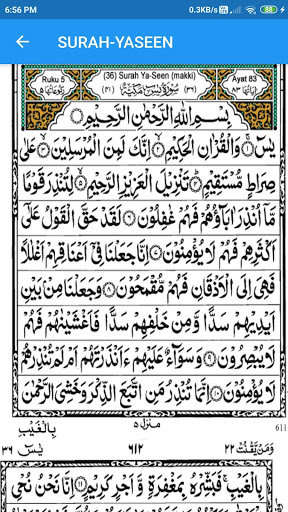 6:56 PM 0.3KB/s
SURAH-YASEEN
Ruku 5 (36) Surah Ya-Seen (makki) Ayat 83
رکوعاتها ۵ (۴۱) سُوْرَةُ يٰسٓ مَكِّيَّةٌ (۳۶) اٰياتها ۸۳
بِسْمِ اللّٰهِ الرَّحْمٰنِ الرَّحِيْمِ
يٰسٓ ۝۱ وَالْقُرْاٰنِ الْحَكِيْمِ ۝۲ اِنَّكَ لَمِنَ الْمُرْسَلِيْنَ ۝۳ عَلٰى
صِرَاطٍ مُّسْتَقِيْمٍ ۝۴ تَنْزِيْلَ الْعَزِيْزِ الرَّحِيْمِ ۝۵ لِتُنْذِرَ قَوْمًا
مَّاۤ اُنْذِرَ اٰبَآؤُهُمْ فَهُمْ غٰفِلُوْنَ ۝۶ لَقَدْ حَقَّ الْقَوْلُ عَلٰۤى
اَكْثَرِهِمْ فَهُمْ لَا يُؤْمِنُوْنَ ۝۷ اِنَّا جَعَلْنَا فِيْۤ اَعْنَاقِهِمْ اَغْلٰلًا
فَهِيَ اِلَى الْاَذْقَانِ فَهُمْ مُّقْمَحُوْنَ ۝۸ وَجَعَلْنَا مِنْۢ بَيْنِ
اَيْدِيْهِمْ سَدًّا وَّمِنْ خَلْفِهِمْ سَدًّا فَاَغْشَيْنٰهُمْ فَهُمْ
لَا يُبْصِرُوْنَ ۝۹ وَسَوَآءٌ عَلَيْهِمْ ءَاَنْذَرْتَهُمْ اَمْ لَمْ تُنْذِرْهُمْ
لَا يُؤْمِنُوْنَ ۝۱۰ اِنَّمَا تُنْذِرُ مَنِ اتَّبَعَ الذِّكْرَ وَخَشِيَ الرَّحْمٰنَ
منزل ۵ بِالْغَيْبِ 611
وَمَنْ يَّقْنُتْ ۲۲ ۶۱۲ يٰسٓ ۳۶
بِالْغَيْبِ فَبَشِّرْهُ بِمَغْفِرَةٍ وَّاَجْرٍ كَرِيْمٍ ۝۱۱ اِنَّا نَحْنُ نُحْيِ